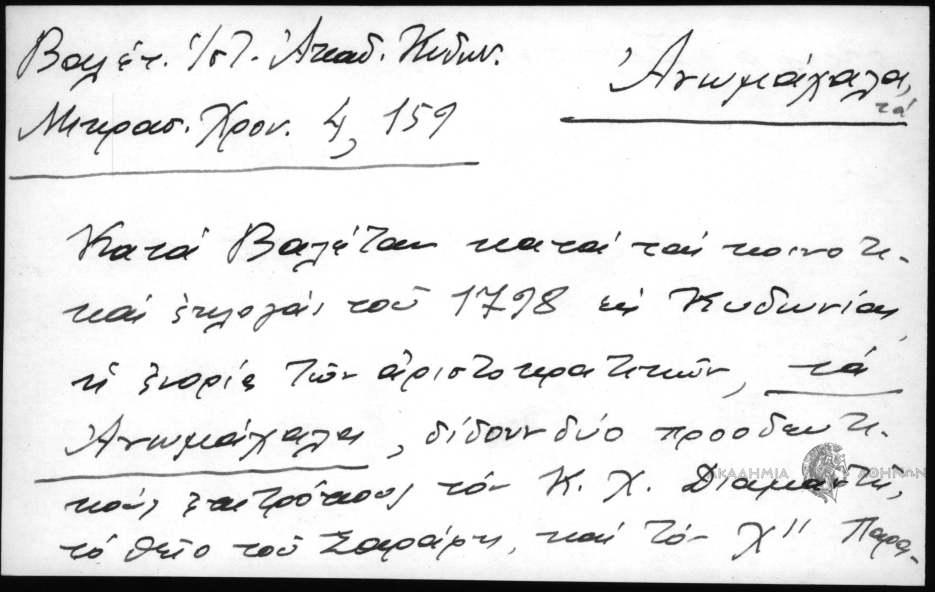 Βαλέτ. Ἱστ. Ἀκαδ. Κυδων.
Μικρασ. Χρον. 4, 159
Ἀνωμάχαλα,
τά
Κατά Βαλέταν κατά τάς κοινοτι-
κάς ἐκλογάς τοῦ 1798 εἰς Κυδωνίας,
ἡ ἐνορία τῶν ἀριστοκρατικῶν, τά
Ἀνωμάχαλα, δίδουν δύο προοδευτι-
κούς ἐπιτρόπους τόν Κ. Χ. Διαμαντῆ,
τό θεῖο τοῦ Σαράφη, καί τόν Χ" Παρα-
ΑΚΑΔΗΜΙΑ ΑΘΗΝΩΝ